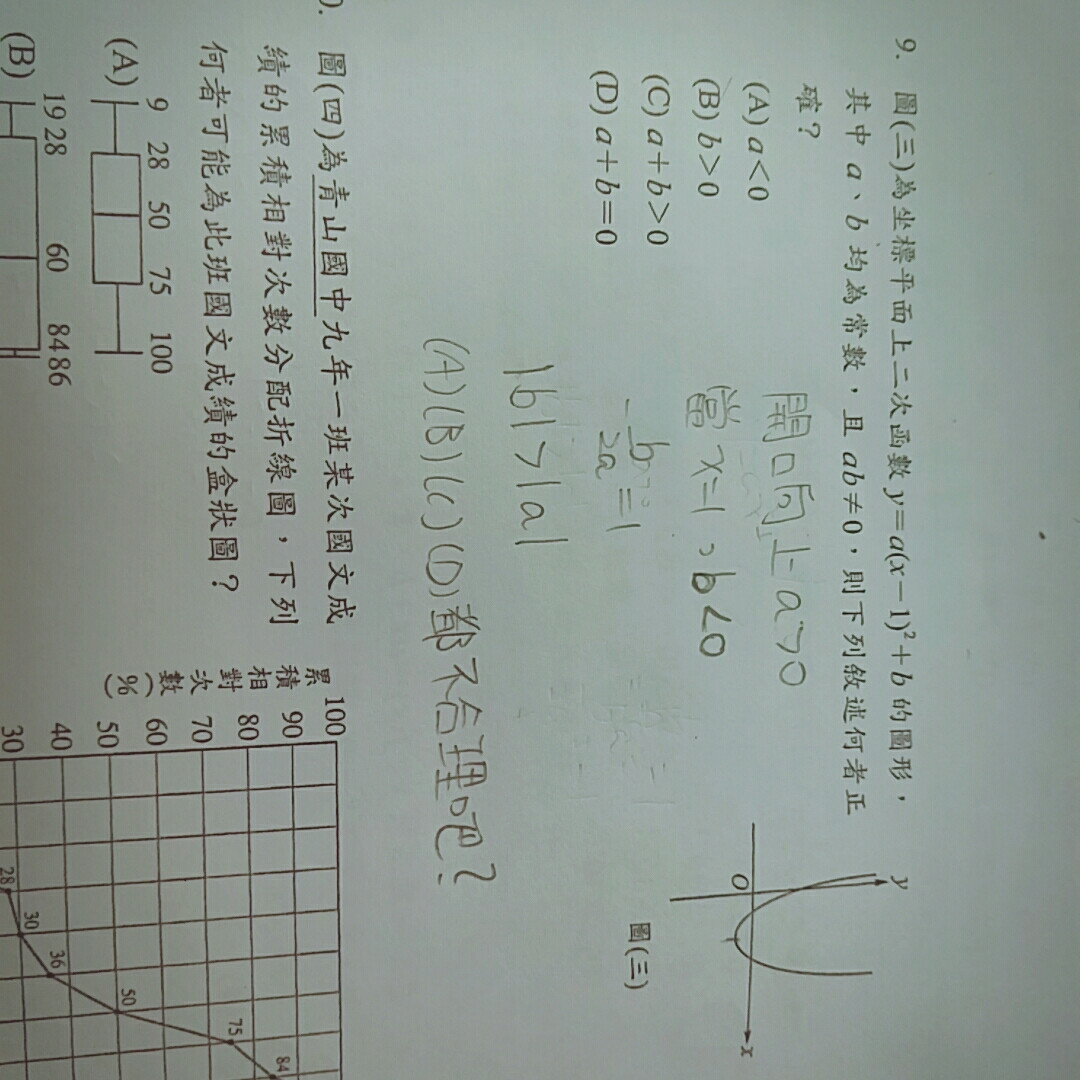 9. 圖(三)為坐標平面上二次函數 y=a(x−1)²+b 的圖形，
其中 a、b 均為常數，且 ab≠0，則下列敘述何者正
確？
(A) a<0
(B) b>0
(C) a+b>0
(D) a+b=0
開口向上 a>0
當 x=1，b<0
-b/2a=1
|b|>|a|
(A)(B)(C)(D)都不合理吧?
y
O
x
圖(三)
0. 圖(四)為青山國中九年一班某次國文成
績的累積相對次數分配折線圖，下列
何者可能為此班國文成績的盒狀圖？
(A)
9 28 50 75 100
(B)
19 28 60 84 86
累積相對次數(%)
100
90
80
70
60
50
40
30
28
30
36
50
75
84